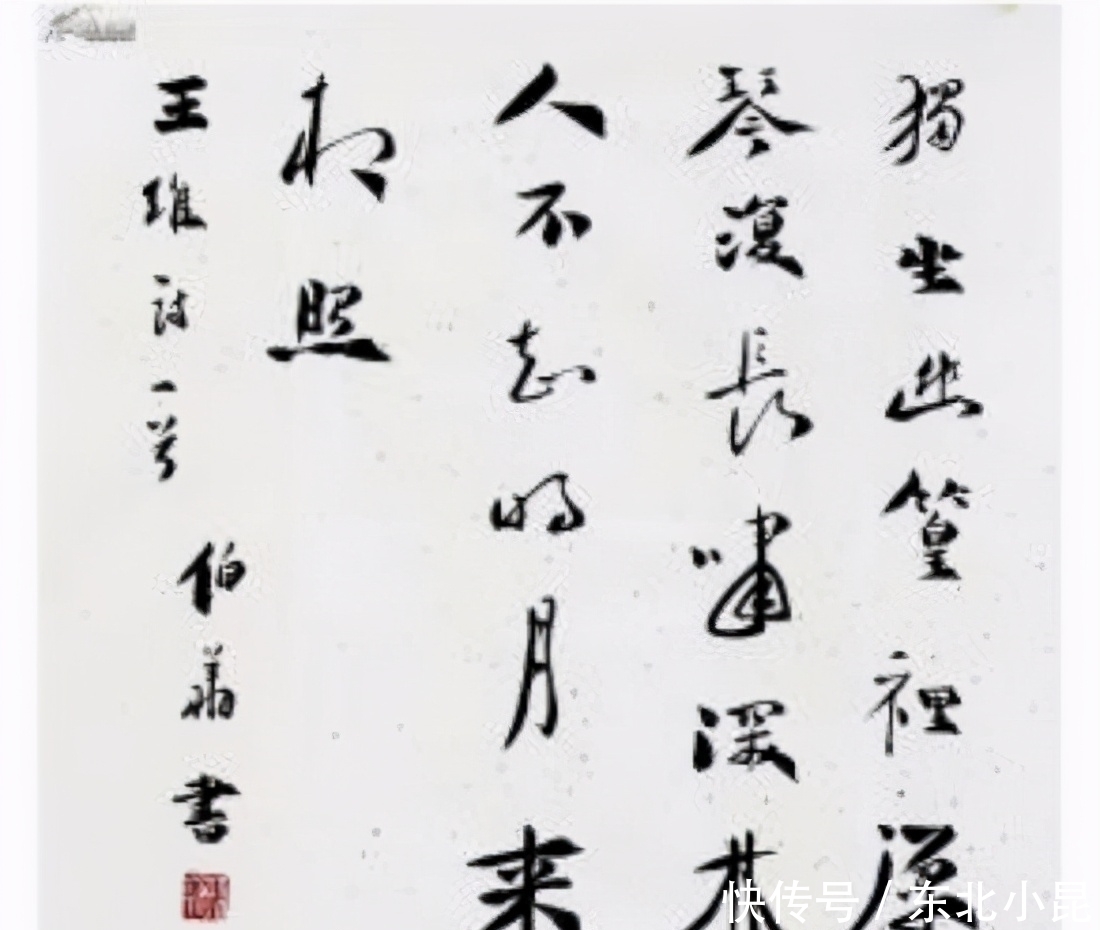 獨坐幽篁裡彈
琴復長嘯深林
人不知明月来
相照
王維詩一首
伯 書
快传号 / 东北小昆